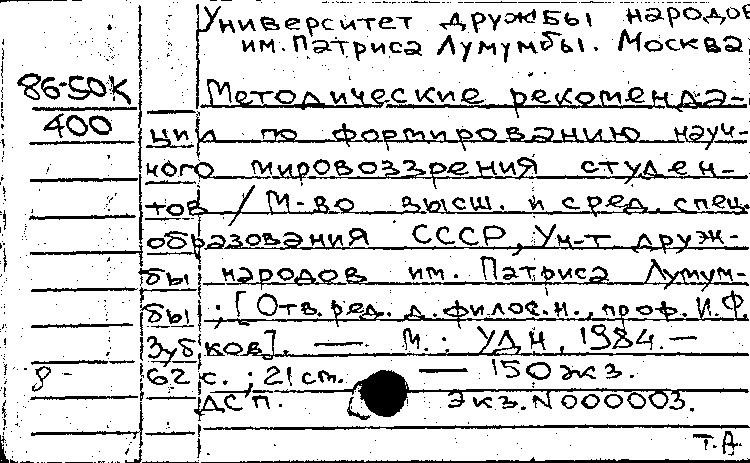 Университет дружбы народов
им. Патриса Лумумбы. Москва
86-50К Методические рекоменда-
400 ции по формированию науч-
ного мировоззрения студен-
тов / М-во высш. и сред. спец.
образования СССР, Ун-т друж-
бы народов им. Патриса Лумум-
бы; [Отв. ред. д. филос. н., проф. И.Ф.
Зубков]. — М.: УДН, 1984. —
8- 62 с.; 21 см. — 150 экз.
ДСП. Экз. N 000003.
Т.А